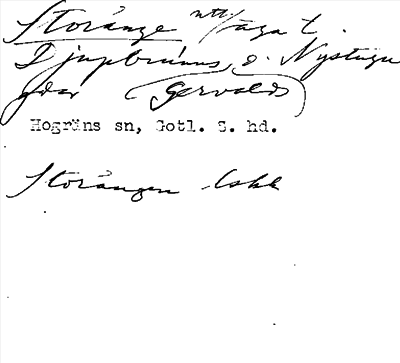 Storänge äga t.
Djupbrunns o. Nystugu
gdar (Gervalds)
Hogräns sn, Gotl. S. hd.
Storängen